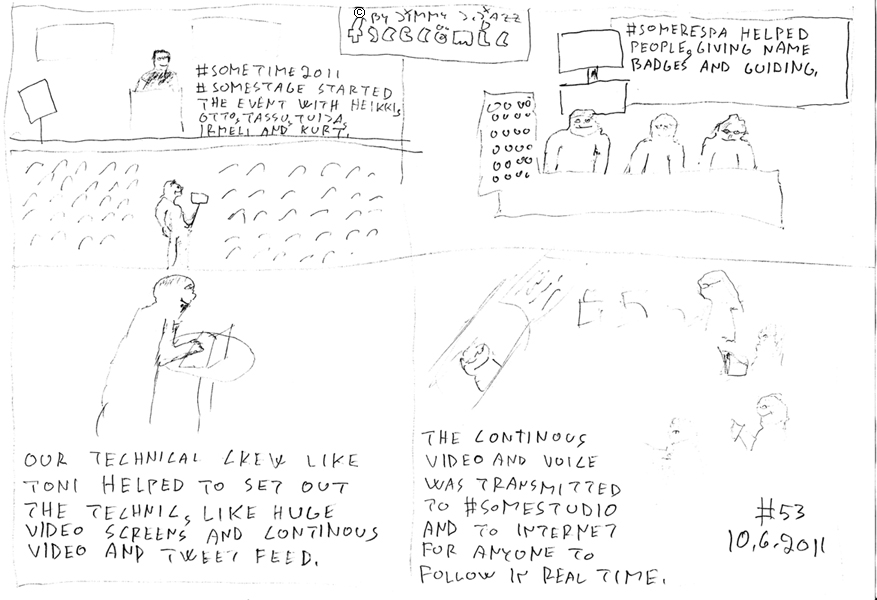 © BY JIMMY J. JAZZ
#SOMETIME2011
#SOMESTAGE STARTED
THE EVENT WITH HEIKKI,
OTTO, TASSU, TUIJA,
IRMELI AND KURT.
#SOMERESPA HELPED
PEOPLE, GIVING NAME
BADGES AND GUIDING.
OUR TECHNICAL CREW LIKE
TONI HELPED TO SET OUT
THE TECHNIC, LIKE HUGE
VIDEO SCREENS AND CONTINOUS
VIDEO AND TWEET FEED.
THE CONTINOUS
VIDEO AND VOICE
WAS TRANSMITTED
TO #SOMESTUDIO
AND TO INTERNET
FOR ANYONE TO
FOLLOW IN REAL TIME.
#53
10.6.2011